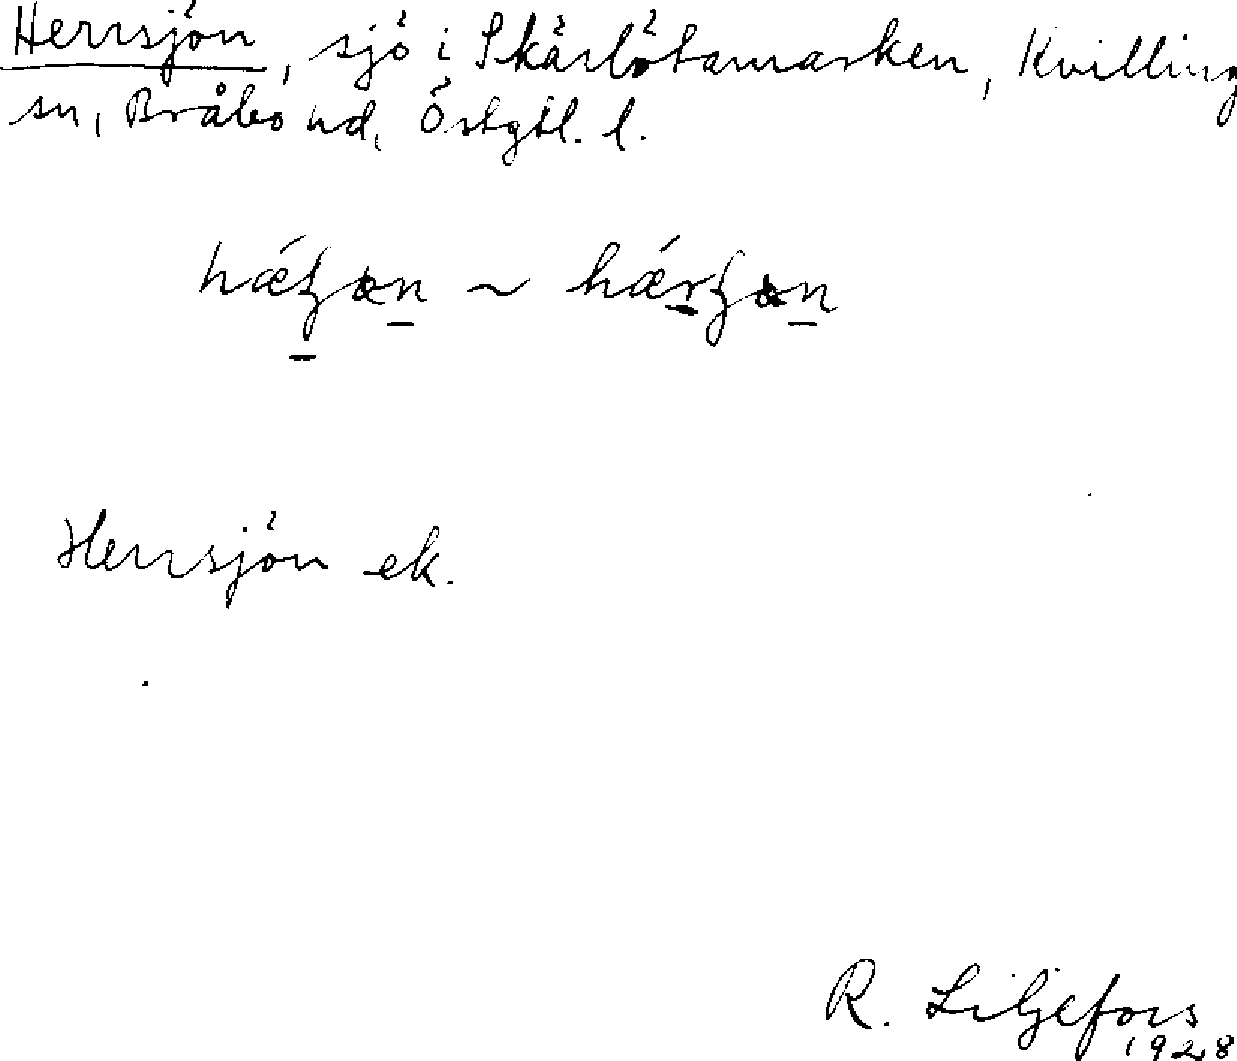 Herrsjön, sjö i Skärlötamarken, Kvilling
sn, Bråbo hd, Östgtl. l.
Herrsjön ek.
R. Liljefors
1928